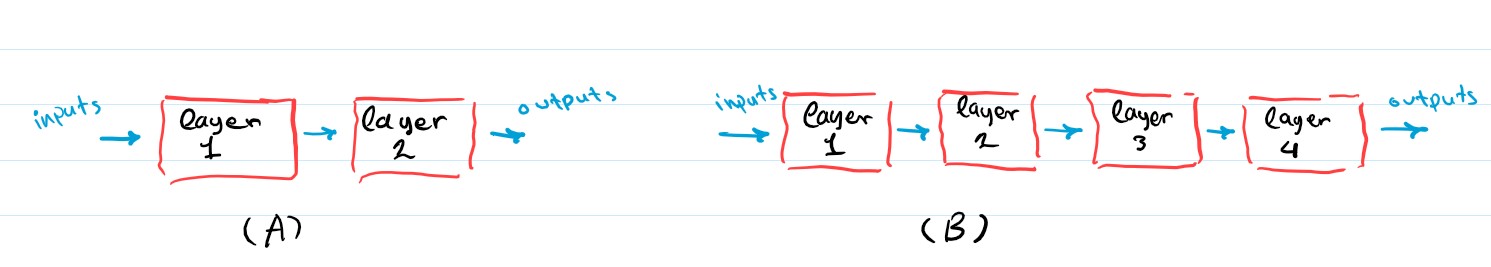 inputs
layer
1
layer
2
outputs
(A)
inputs
layer
1
layer
2
layer
3
layer
4
outputs
(B)